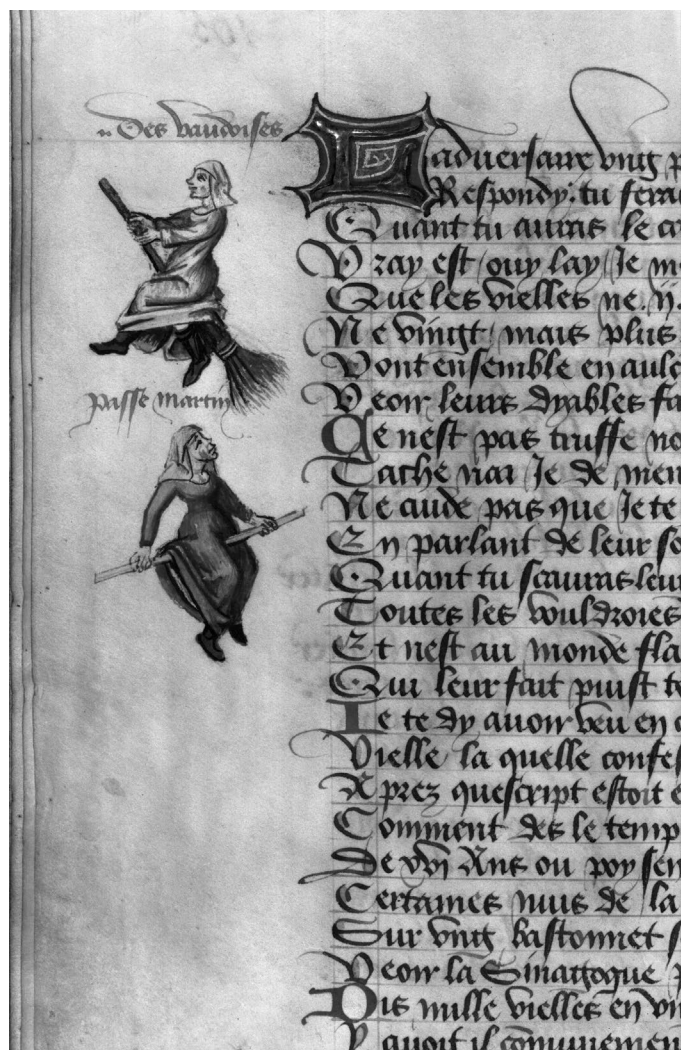 Des vaudoises
passe martin
Ladversaire vng p
Respondy: tu sera
Quant tu auras le co
Vray est ouy lay Je m
Que les vielles ne ij.
Ne vingt mais plus
Vont ensemble en aulc
Veoir leurs dyables fa
Ce nest pas truffe no
Je de men
Ne cuide pas que Je te
En parlant de leur so
Quant tu scauras leur
Toutes les vouldroies
Et nest au monde fla
Qui leur fait puist te
Ie te dy auoir veu en c
Vielle la quelle confes
Aprez quescript estoit e
Comment des le temp
De xvi Ans ou poy sen
Certaines nuis de la
Sur vng bastonnet s
Veoir la Sinagogue p
Dix mille vielles en vn
Y auoit il